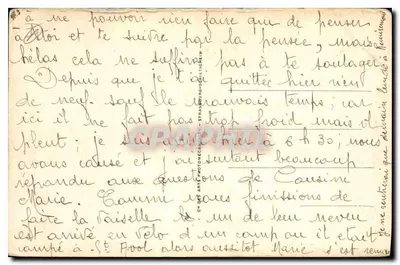 à ne pouvoir rien faire que de penser
à toi et te suivre par la pensée, mais
hélas cela ne suffira pas à te soulager.
Depuis que je t'ai quittée hier rien
de neuf sauf le mauvais temps; car
ici il ne fait pas trop froid mais il
pleut; je suis à 6h30; nous
avons causé et j'ai surtout beaucoup
répondu aux questions de Cousine
Marie. Comme nous finissions de
faire la vaiselle un de leur neveu
est arrivé en vélo d'un camp ou il etait
campé à St Avol alors aussitot Marie s'est
je ne rentrerai que demain lundi à
CPARAMA.COM